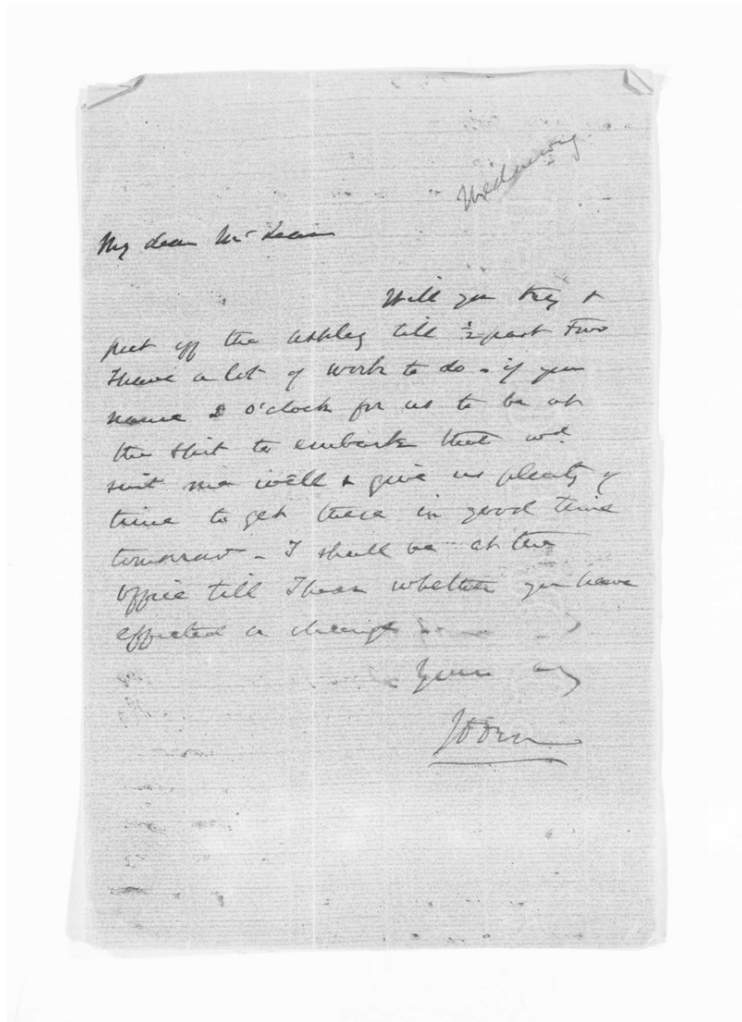 Wednesday
My dear McLean
Will you try &
put off the Ashley till ½ past Two
I have a lot of work to do - if you
name 2 o'clock for us to be at
the Spit to embark that wd.
suit me well & give us plenty of
time to get there in good time
tomorrow - I shall be at the
Office till I hear whether you have
effected a change
Yours